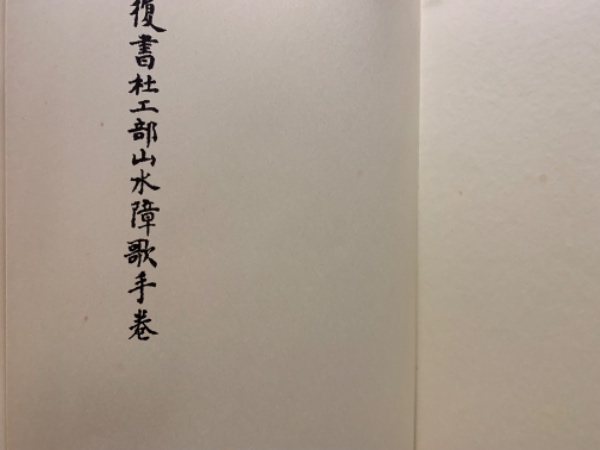 復書杜工部山水障歌手卷